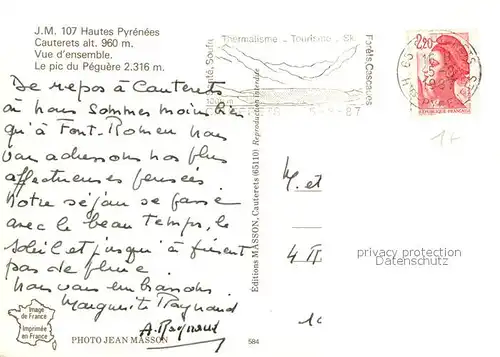 J.M. 107 Hautes Pyrénées
Cauterets alt. 960 m.
Vue d'ensemble.
Le pic du Péguère 2.316 m.
Thermalisme _ Tourisme _ Ski
Forêts, Cascades
2,20
De repos à Cauterets
où nous sommes moins bien
qu'à Font-Romeu nous
vous adressons nos plus
affectueuses pensées.
Notre séjour se passe
avec le beau temps, le
soleil et jusqu'à présent
pas de pluie.
Nous vous embrassons
Marguerite Raynaud
A. Raynaud
Editions MASSON, Cauterets (65110) Reproduction interdite
M. et
4 R
privacy protection
Datenschutz
Image
de France
Imprimée
en France
PHOTO JEAN MASSON
584